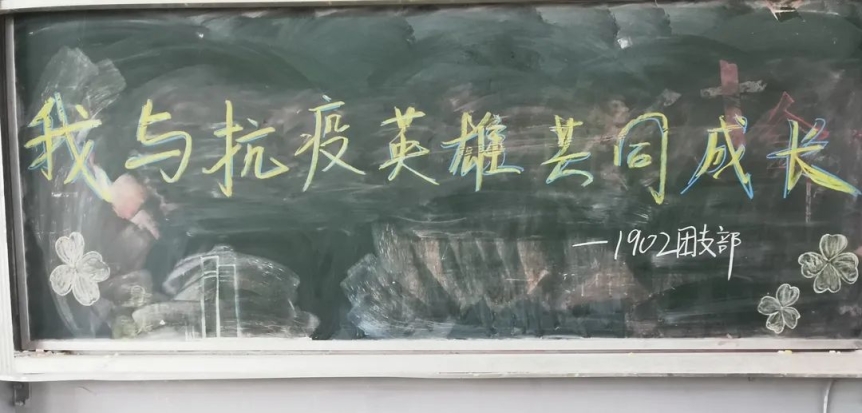 我与抗疫英雄共同成长
—1902团支部